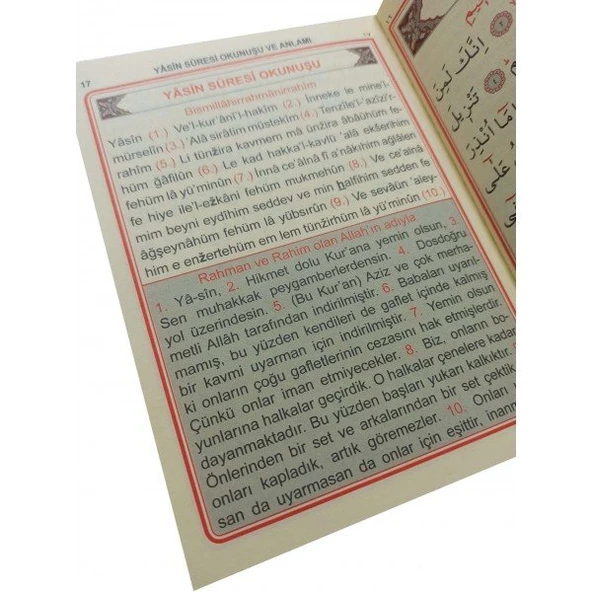 17
YÂSÎN SÛRESİ OKUNUŞU VE ANLAMI
YÂSÎN SÛRESİ OKUNUŞU
Bismillâhirrahmânirrahîm
Yâsîn (1.) Ve'l-kur'âni'l-hakîm (2.) İnneke le mine'l-
mürselîn (3.) 'Alâ sırâtim müstekîm (4.) Tenzîle'l-'azîzi'r-
rahîm (5.) Li tünzira kavmem mâ ünzira âbâühüm fe-
hüm ğâfilûn (6.) Le kad hakka'l-kavlü 'alâ ekserihim
fehüm lâ yü'minûn (7.) İnnâ ce'alnâ fî a'nâkıhim ağlâlen
fe hiye ile'l-ezkâni fehüm mukmehûn (8.) Ve ce'alnâ
mim beyni eydîhim seddev ve min halfihim sedden fe
âğşeynâhüm fehüm lâ yübsırûn (9.) Ve sevâün 'aley-
him e enzertehüm em lem tünzirhüm lâ yü'minûn (10.)
Rahman ve Rahim olan Allah'ın adıyla
1. Yâ-sîn, 2. Hikmet dolu Kur'ana yemin olsun, 3.
Sen muhakkak peygamberlerdensin. 4. Dosdoğru
yol üzerindesin. 5. (Bu Kur'an) Aziz ve çok merha-
metli Allâh tarafından indirilmiştir. 6. Babaları uyarıl-
mamış, bu yüzden kendileri de gaflet içinde kalmış
bir kavmi uyarman için indirilmiştir. 7. Yemin olsun
ki onların çoğu gafletlerinin cezasını hak etmişlerdir.
Çünkü onlar iman etmiyecekler. 8. Biz, onların bo-
yunlarına halkalar geçirdik. O halkalar çenelere kadar
dayanmaktadır. Bu yüzden başları yukarı kalkıktır.
Önlerinden bir set ve arkalarından bir set çektik
onları kapladık, artık göremezler. 10. Onları
san da uyarmasan da onlar için eşittir, inanm
اِنَّكَ لَمِنَ
تَنْزِيلَ
مَا اُنْذِرَ
عَلٰى